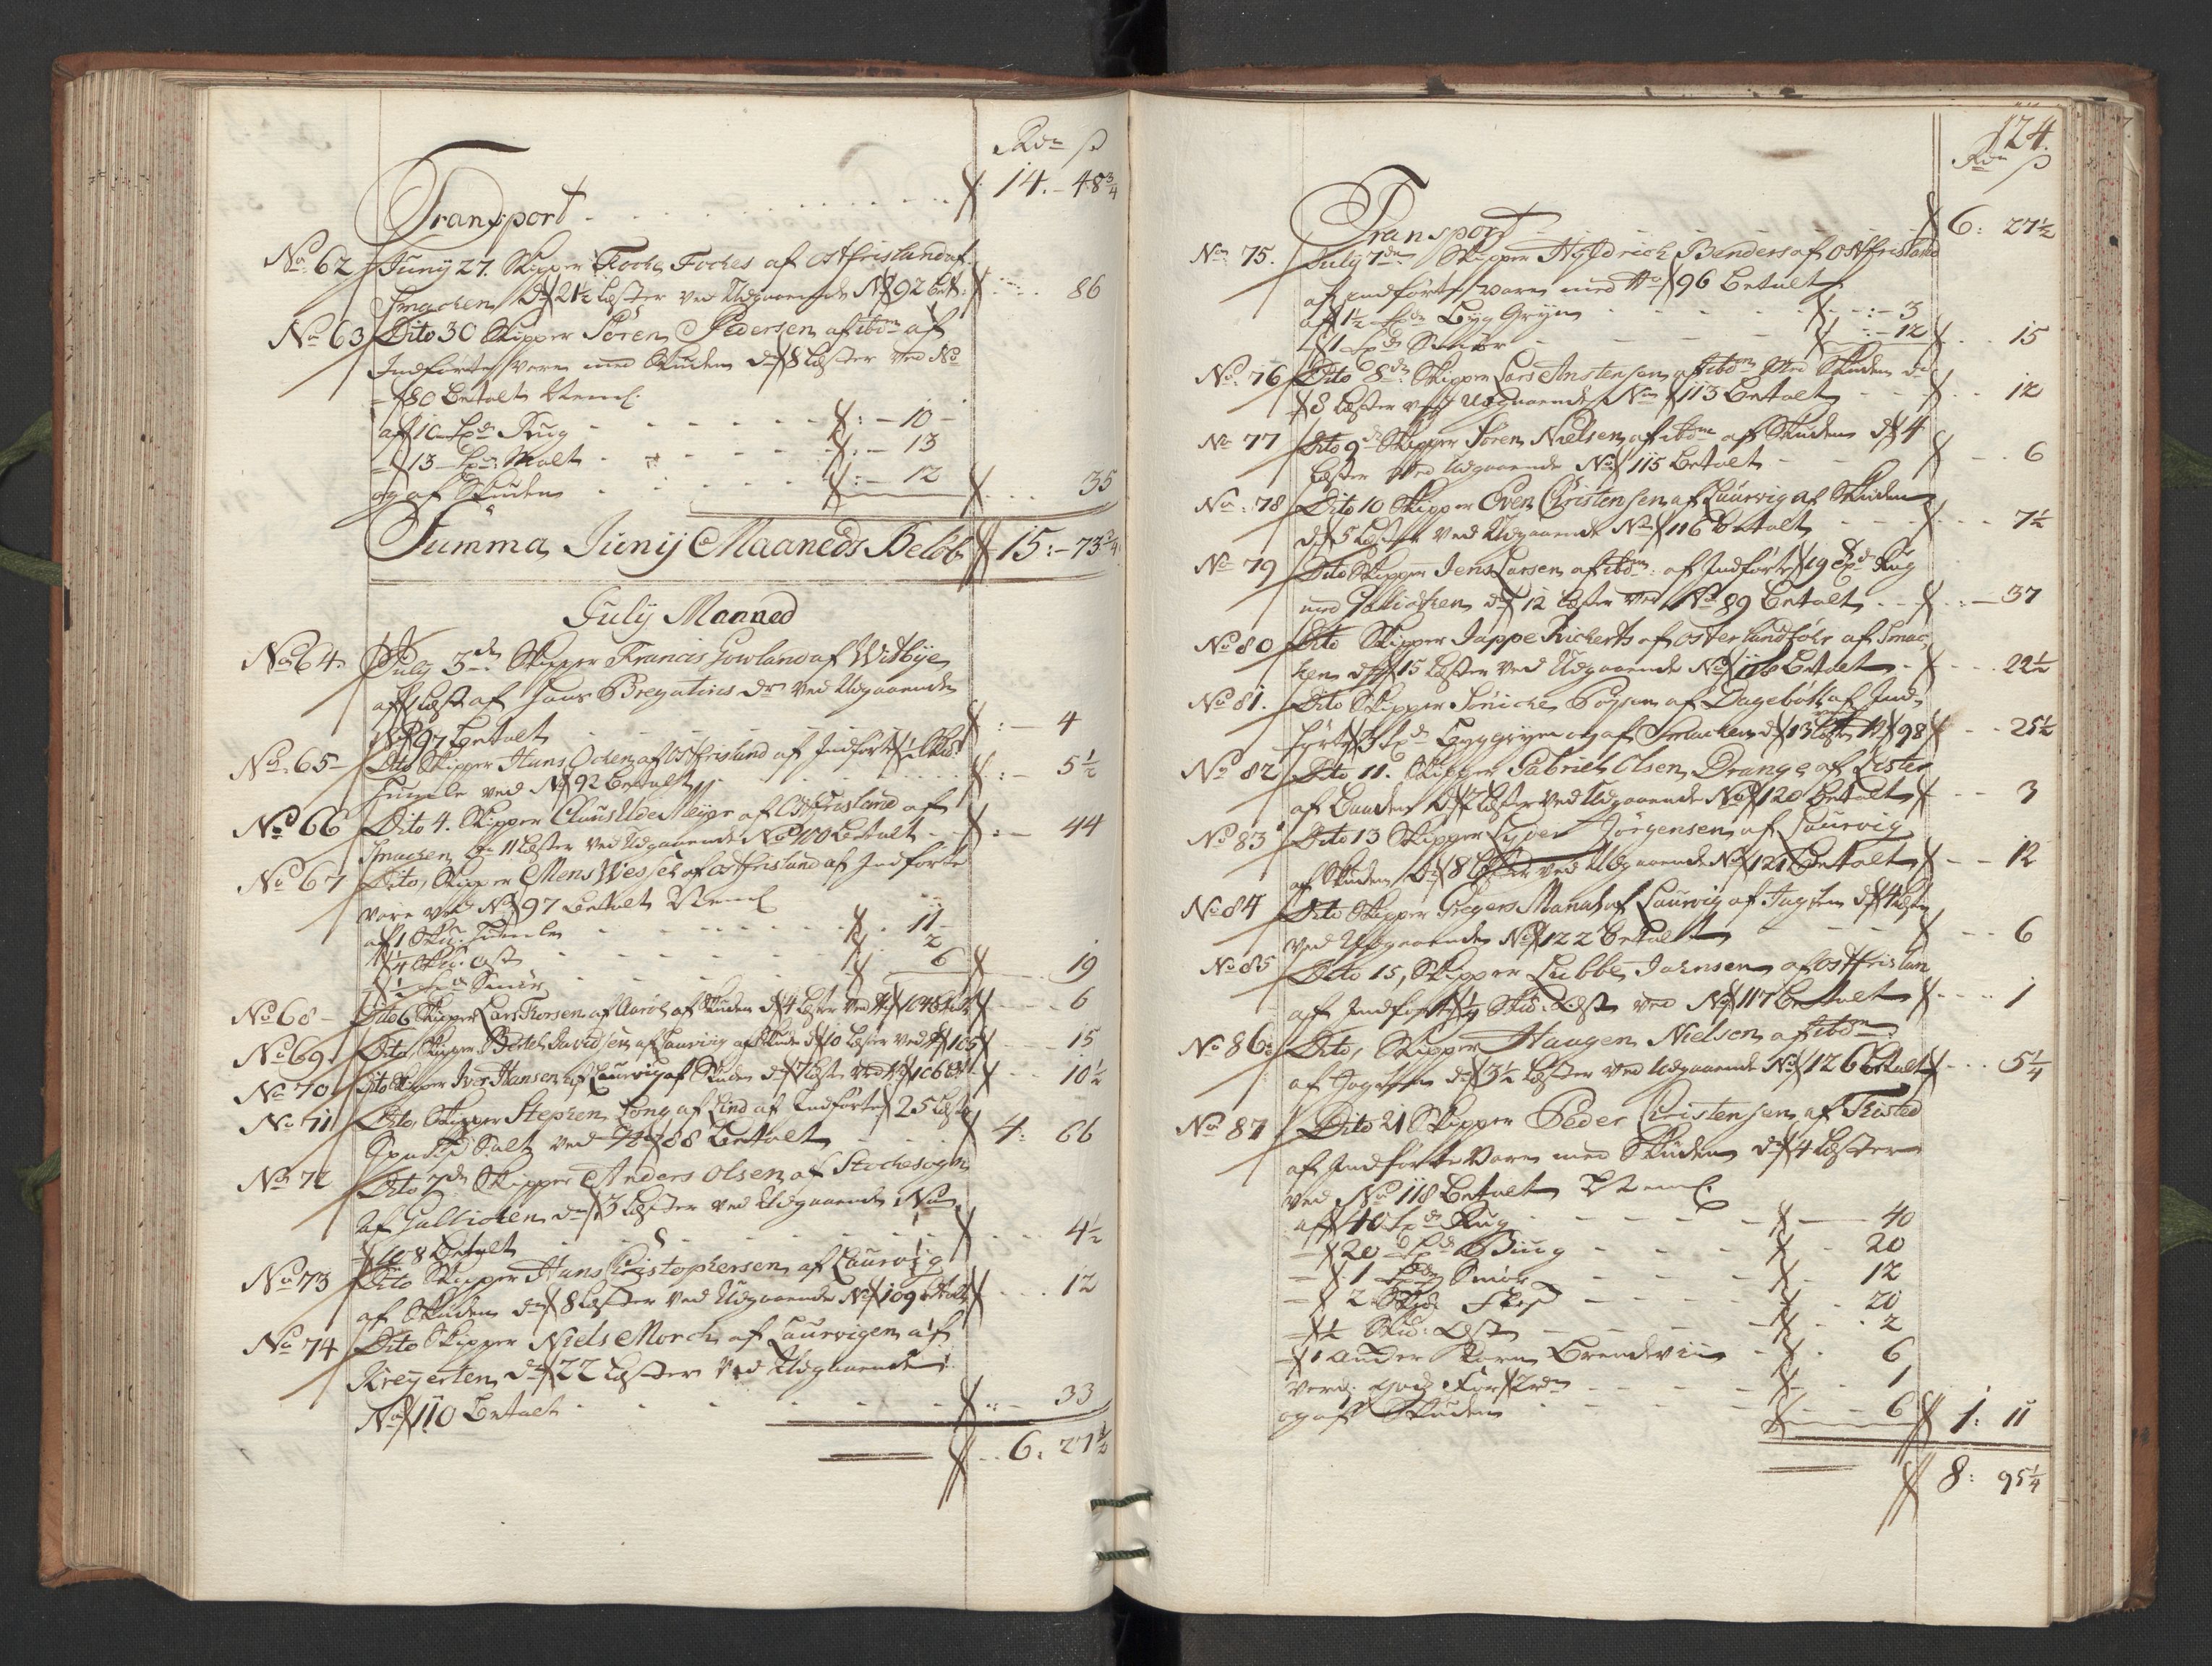 Rdr ß
Transport 14. - 48¾
No 62 Junij 27. Skipper Focke Fockes af Ostfrisland af
Smacken dr 21½ Læster ved Udgaaende No 92 bet: 86
No 63 Dito 30 Skipper Søren Pedersen af ibdm af
Indførte Vare med Skuden dr 8 Læster ved No
80 Betalt Neml.
af 10 Lpd Rug : - 10 -
- 13 Lpd: Malt : - 13
og af Skuden : - 12 35
Summa Junij Maaneds Beløb 15: - 73¾
Julij Maaned
No 64. July 3den Skipper Francis Gowland af Witbye
af 1 Læst af Hans dr ved Udgaaende
No 97 Betalt : - 4
No 65 - Dito Skipper Hans Ocken af Ostfrisland af Indførte ½ Skd:
Humle ved No 92 Betalt : - 5½
No 66 Dito 4. Skipper Claus Ude Meyer af Ostfrisland af
Smacken dr 11 Læster ved Udgaaende No 100 Betalt : - 44
No 67 Dito, Skipper Mens Wessel af Ostfrisland af Indførte
Vare ved No 97 Betalt Neml
af 1 Skd: Humle 11
- ¼ Skd: Ost 2
- ½ Lpd Smør 6 19
No 68 - Dito 6 Skipper Lars Thorsen af af Skuden dr 4 Læster ved No 104 Betalt 6
No 69. Dito, Skipper Bertel Davidsen af Laurvig af Skuden dr 10 Læster ved No 105 15
No 70. Dito Skipper Iver Hansen af Laurvig af Skuden dr 7 Læster ved No 106 bet 10½
No 71 Dito, Skipper Stephen Long af Lind af Indførte 25 Læster
Spansk Salt ved No 88 Betalt 4: 66
No 72 Dito 7de Skipper Anders Olsen af Stochesogn
af Gallioten dr 3 Læster ved Udgaaende No
108 Betalt 4½
No 73 Dito Skipper Hans Christophersen af Laurvig
af Skuden dr 8 Læster ved Udgaaende No 109 Betalt 12
No 74 Dito Skipper Niels Morch af Laurvigen af
Kreyerten dr 22 Læster ved Udgaaende
No 110 Betalt : - 33
6: 27½
124.
Rdr ß
Transport 6: 27½
No 75. July 7de Skipper Hyldrich Benders af Ostfrisland
af Indførte Vare med No 96 Betalt
af 1½ Lpd Byg Gryn : - 3
- 1 Lpd Smør : - 12 15
No 76 Dito 8de Skipper Lars Anstensen af ibdm Med Skuden dr
8 Læster ved Udgaaende No 113 Betalt 12
No 77 Dito 9de Skipper Søren Nielsen af ibdm af Skuden dr 4
Læster Ved Udgaaende No 115 Betalt 6
No 78 Dito 10 Skipper Even Christensen af Laurvig af Skuden
dr 5 Læster ved Udgaaende No 116 Betalt 7½
No 79 Dito Skipper Jens Larsen af ibdm: af Indførte 19 Lpd Rug
med Gallioten dr 12 Læster ved No 89 Betalt : - 37
No 80 Dito Skipper Jappe Richerts af Osterlandføhr af Smac-
ken dr 15 Læster ved Udgaaende No 118 Betalt 22½
No 81. Dito Skipper Søniche Poysen af Dagebøl af Ind-
førte 3 Lpd Byggryn og af Smacken dr 13 Læster ved No 98 25½
No 82 Dito 11. Skipper Gabriel Olsen Drange af Lister
af Baaden dr 2 Læster ved Udgaaende No 120 Betalt 3
No 83 Dito 13 Skipper Syver Jørgensen af Laurvig
af Skuden dr 8 Læster ved Udgaaende No 121 Betalt 12
No 84 Dito Skipper Gregers Mandt af Laurvig af Jagten dr 4 Læster
ved Udgaaende No 122 Betalt 6
No 85 Dito 15, Skipper Lubbe Jahnsen af Ostfrisland
af Indførte ¼ Skd: Ost ved No 117 Betalt 1
No 86: Dito, Skipper Haagen Nielsen af ibdm
af Jagten dr 3½ Læster ved Udgaaende No 126 betalt 5¼
No 87 Dito 21 Skipper Peder Christensen af Thisted
af Indførte Vare med Skuden dr 4 Læster
ved No 118 Betalt Neml.
af 40 Lpd Rug 40
- 20 Lpd Biug 20
- 1 Lpd Smør 12
- 2 Skd: Flesk 20
- ½ Skd: Ost 2
- 1 Ancker Korn Brendeviin 6
Verd. godz for 2 rdr 1
og af Skuden 6 1: 11
8: 95¼